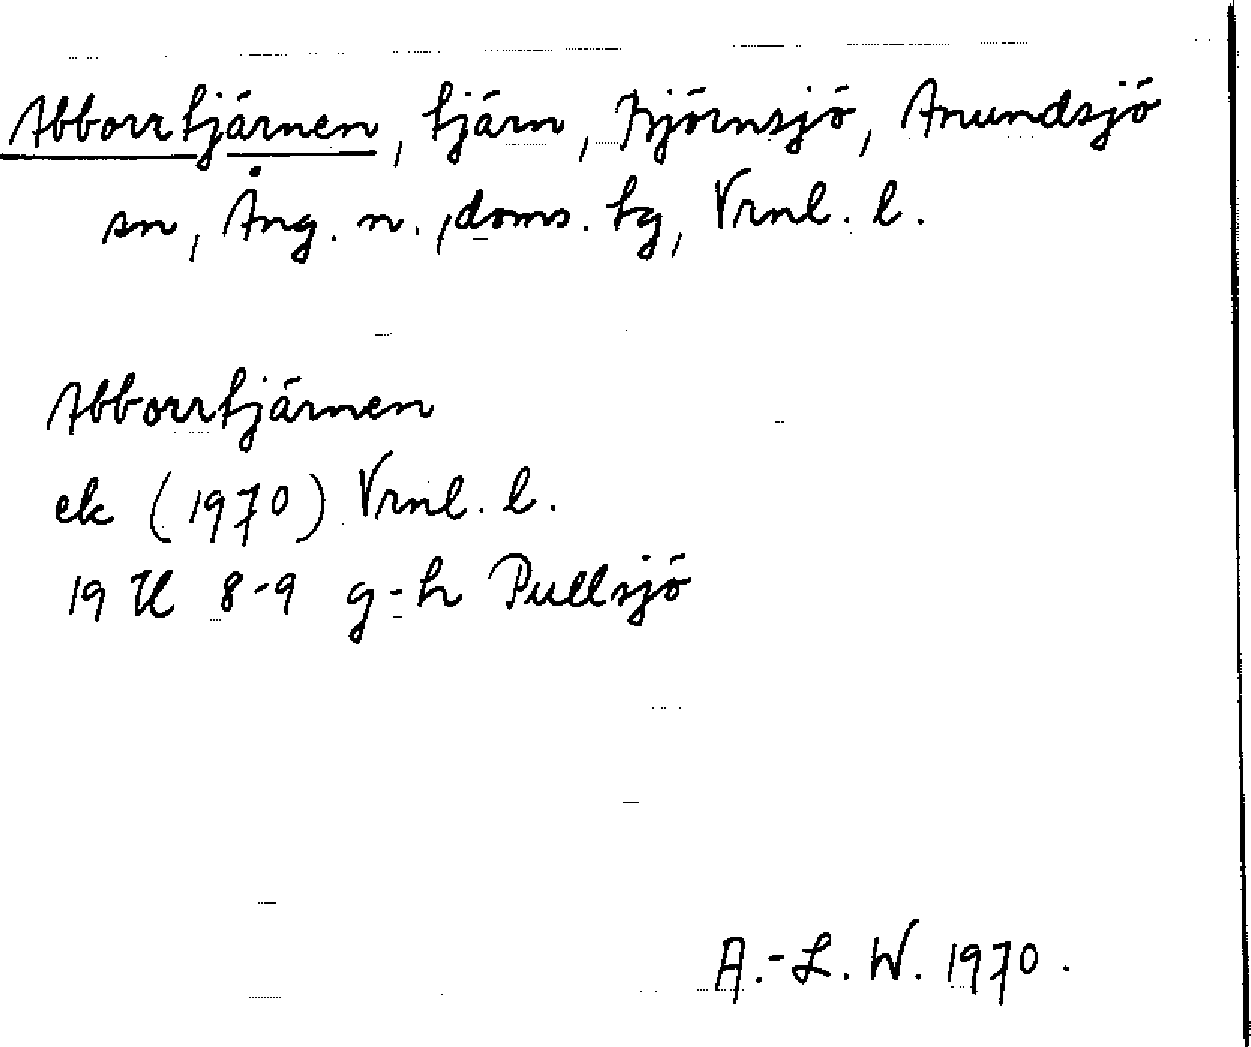 Abborrtjärnen, tjärn, Björnsjö, Anundsjö
sn, Ång. n., doms. tg, Vrnl. l.
Abborrtjärnen
ek (1970) Vrnl. l.
19 H 8-9 g-h Pullsjö
A.-L. W. 1970.